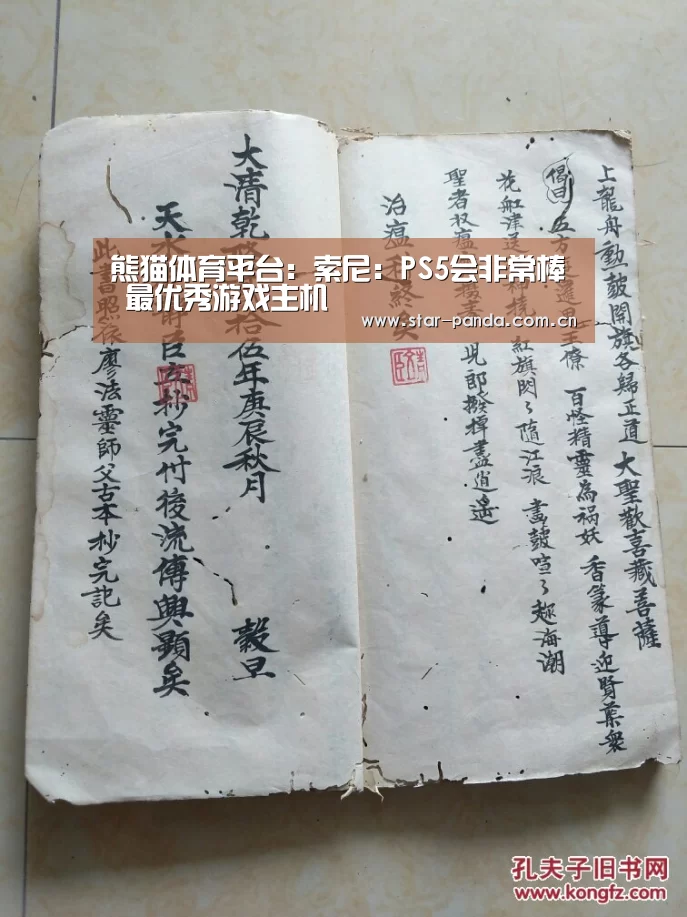 上龍舟動鼓開旗各歸正道 大聖歡喜藏菩薩
偈曰 五方 王僚 百怪精靈為禍妖 香篆導迎賢葉衆
花舡津送 紅旗閃々隨江浪 畫皷喧々趂海潮
聖者收瘟 此郎撥棹盡逍遙
治瘟 終矣
大清乾隆 拾伍年庚辰秋月 穀旦
天水 臣 抄完付後流傳興顯矣
此書照依廖法靈師父古本抄完記矣
熊猫体育平台：索尼：PS5会非常棒
最优秀游戏主机
www.star-panda.com.cn
孔夫子旧书网
www.kongfz.com